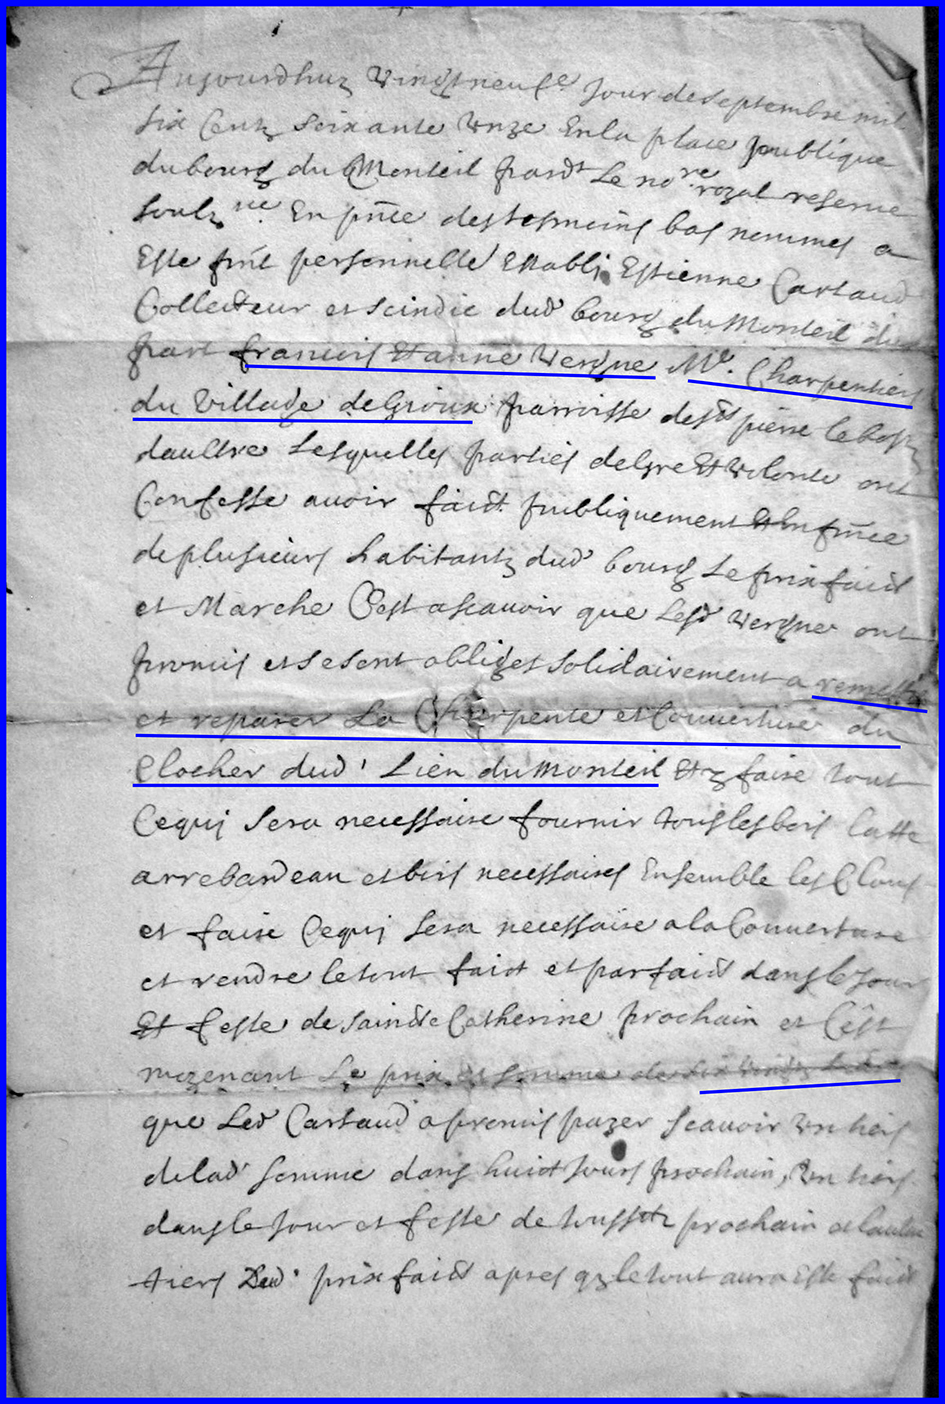 Aujourdhuy vingt neufe Jour de Septembre mil
six Centz soixante Unze En la place publique
du bourg du Monteil pardt Le nore royal reserve
soubzne En pnce des tesmoins bas nommes a
Este pnt personnelle Establi Estienne Cartaud
Collecteur et scindic dud bourg du Monteil dune
part francois Et anne Vergne Me. Charpentiers
du Village de Groux parroisse de st pierre le bost
daultre Lesquelles parties de gre Et volonte ont
Confesse avoir faict publiquement Et En pnce
de plusieurs habitantz dud bourg Le prix faict
et Marche Cest ascavoir que Lesd Vergne ont
promis et se sont obliges solidairement a remettre
et reparer La Charpente et Couverture du
Clocher dud Lieu du Monteil Et y faire tout
Cequi sera necessaire fournir tous les bois latte
a rebardeau et bois necessaires Ensemble les Clous
et faire Cequi sera necessaire a la Couverture
et rendre le tout faict et parfaict dans le Jour
Et feste de saincte Catherine prochain et Cest
moyenant Le prix et somme de six vingtz livres
que Led Cartaud a promis payer scavoir un tiers
de lad somme dans huict Jours prochain, Un tiers
dans le Jour et feste de toussctz prochain et laultre
tiers Dud prix faict apres q le tout aura Este faict